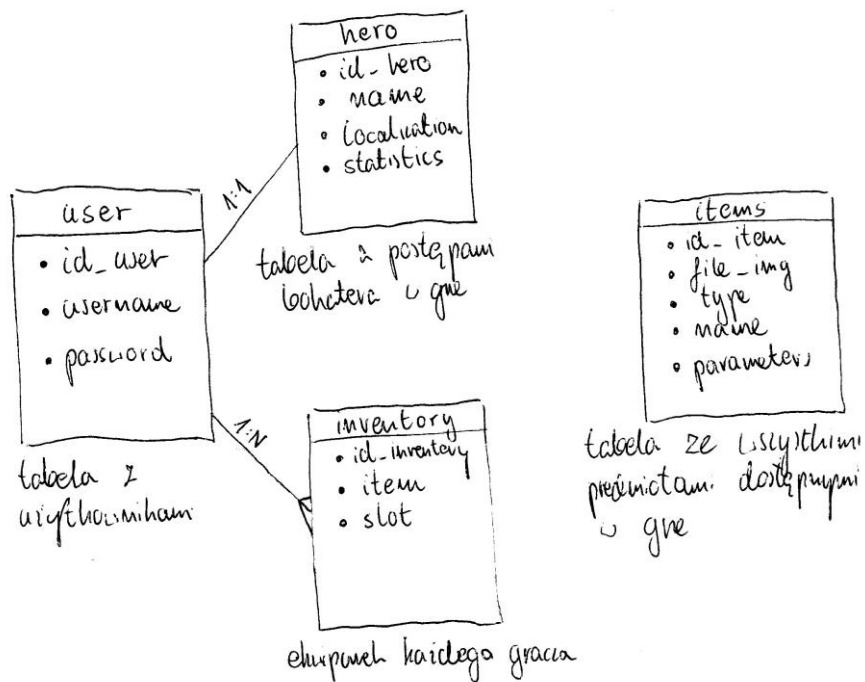 hero
• id_hero
• name
• localization
• statistics
1:1
tabela z postępami
bohatera w grze
user
• id_user
• username
• password
tabela z
użytkownikami
1:N
inventory
• id_inventory
• item
• slot
ekwipunek każdego gracza
items
• id_item
• file_img
• type
• name
• parameters
tabela ze wszystkimi
przedmiotami dostępnymi
w grze